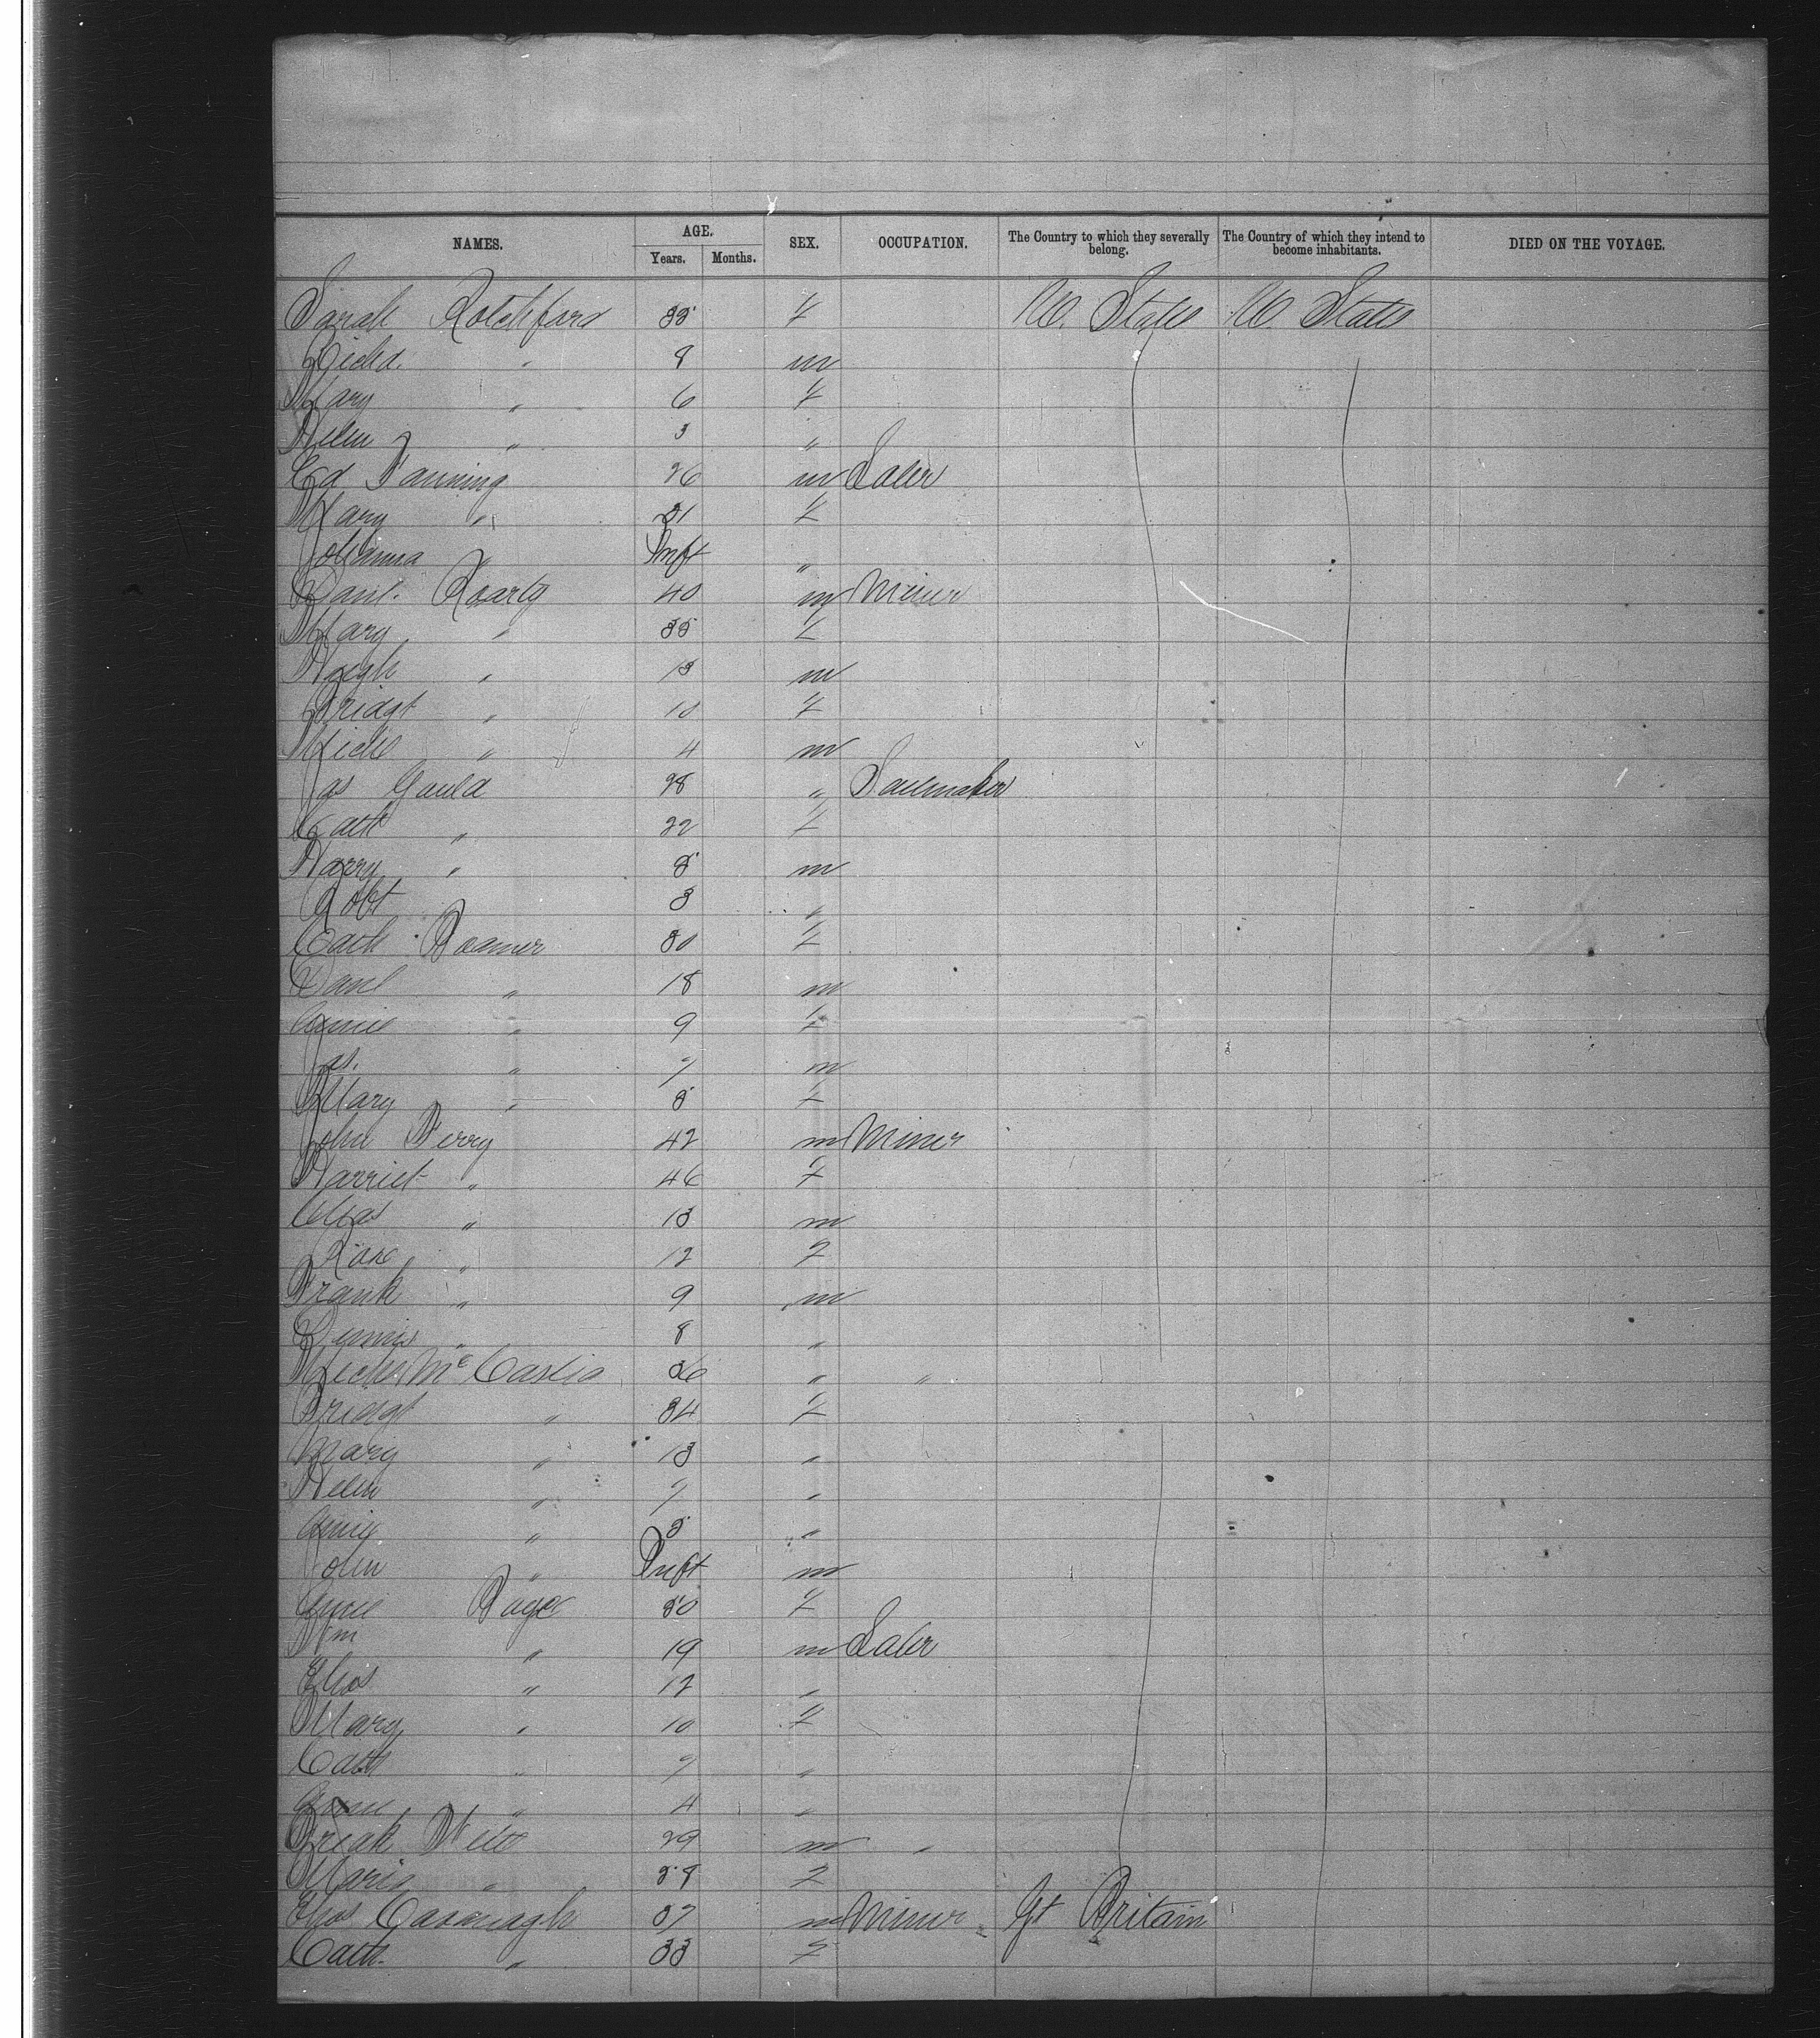 NAMES. AGE. SEX. OCCUPATION. The Country to which they severally belong. The Country of which they intend to become inhabitants. DIED ON THE VOYAGE.
Years. Months.
Sarah Rotchford 35 f U. States U. States
Richd. " 8 m
Mary " 6 f
Helen " 3 "
Ed Fanning 26 m Labr
Mary " 21 f
Johanna " Inft "
Danl. Roarty 40 m Miner
Mary " 35 f
Hugh " 13 m
Bridgt " 10 f
Michl " 4 m
Jas Gould 28 " Sailmaker
Cath " 22 f
Harry " 5 m
Robt 3 "
Cath 30 f
Danl " 18 m
Annie " 9 f
Jas. " 7 m
Mary " 5 f
John Ferry 42 m Miner
Harriet " 46 f
Chas " 13 m
Rose " 12 f
Frank " 9 m
Dennis " 8 "
Michl Mc 36 " "
Bridgt " 34 f
Mary " 13 "
Helen " 7 "
Annie " 5 "
John " Inft m
Anne 50 f
Wm " 19 m Labr
Thos " 12 "
Mary " 10 f
Cath " 7 "
Anne " 4 "
29 m "
Maria " 28 f
Thos Cavanagh 37 m Miner Gt Britain
Cath. " 33 f